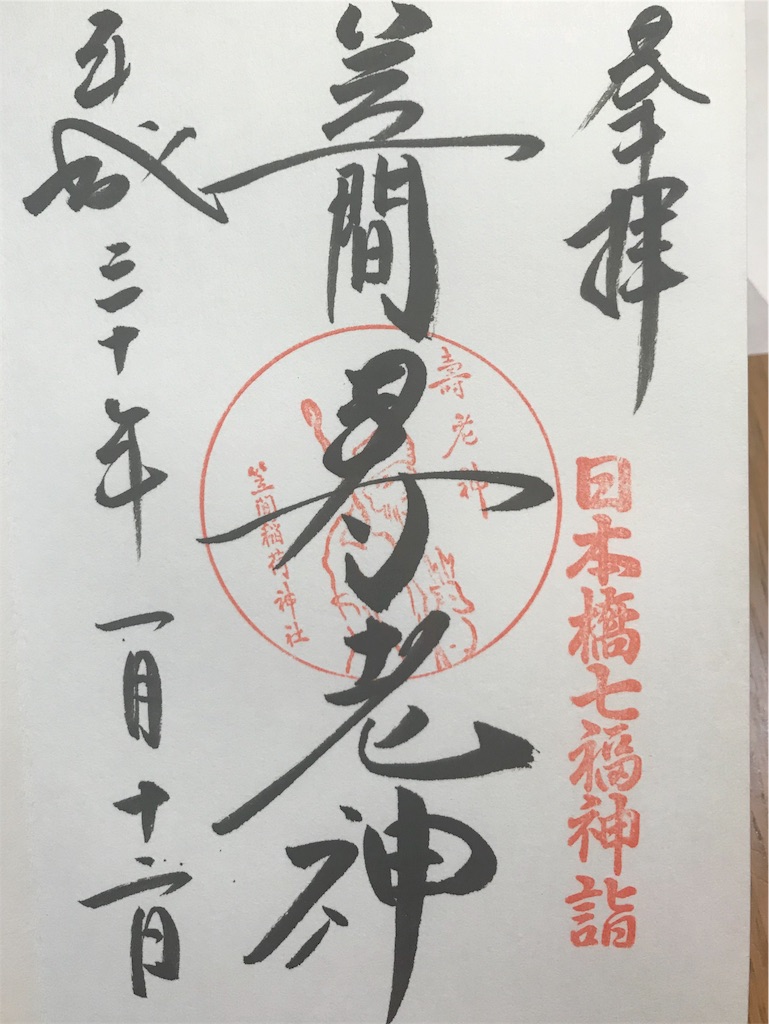 奉拝
日本橋七福神詣
笠間寿老神
壽老神
笠間稲荷神社
平成三十年一月十二日